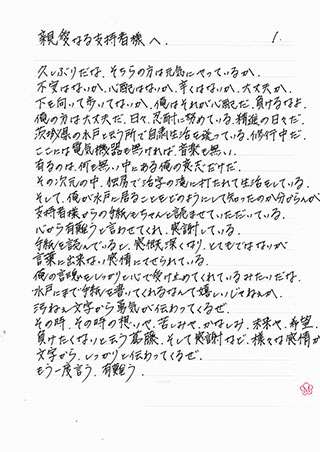 親愛なる支持者様へ. 1.
久しぶりだな、そちらの方は元気にやっているか、
不安はないか、心配はないか、辛くはないか、大丈夫か、
下を向いて歩いてないか、俺はそれが心配だ、負けるなよ
俺の方は大丈夫だ、日々、忍耐に努めている、精進の日々だ、
茨城県の水戸と云う所で自粛生活を送っている、修行中だ、
ここには電気機器も無ければ、音楽も無い、
有るのは、何も無い中にある俺の意志だけだ
その次元の中、独房で活字の滝に打たれて生活をしている、
そして、俺が水戸に居ることをどのようにして知ったのか分からんが
支持者様からの手紙をちゃんと読ませていただいている、
心から有難うと言わせてくれ、感謝している、
手紙を読んでいると、感慨深くなり、とてもではないが
言葉に出来ない感情にさせられている、
俺の言魂をしっかりと心で受け止めてくれているみたいだな、
水戸にまで手紙を書いてくれるなんて嬉しいじゃねえか、
汚ねえ文字から勇気が伝わってくるぜ、
その時、その時の想いや、苦しみや、かなしみ、未来や、希望、
負けたくないと云う葛藤、そして感謝など、様々な感情が
文字から、しっかりと伝わってくるぜ、
もう一度言う、有難う、